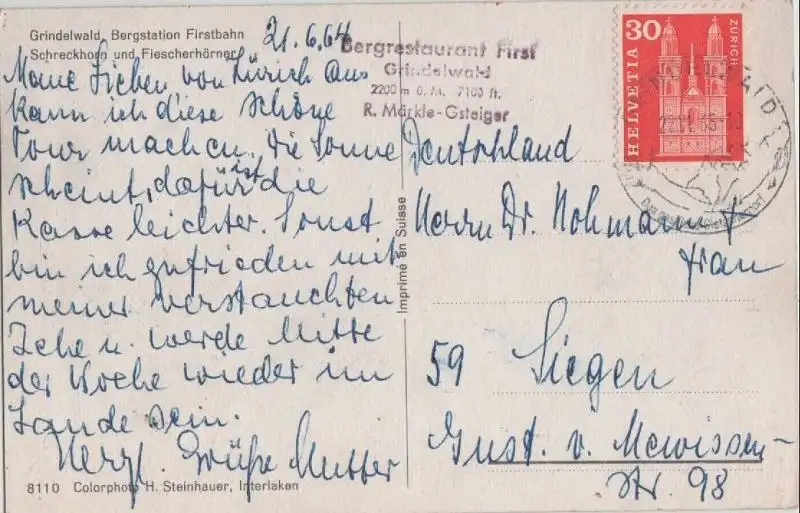 Grindelwald, Bergstation Firstbahn
Schreckhorn und Fiescherhörner
21.6.64
Meine Lieben von Zürich aus
kann ich diese schöne
Tour machen. Die Sonne
scheint, dafür ist die
Kasse leichter. Sonst
bin ich zufrieden mit
meiner verstauchten
Zehe u. werde Mitte
der Woche wieder im
Lande sein.
Herzl. Grüße Mutter
8110 Colorphoto H. Steinhauer, Interlaken
Bergrestaurant First
Grindelwald
2200 m ü. M. 7100 ft.
R. Märkle-Gsteiger
Imprimé en Suisse
30
HELVETIA
ZÜRICH
Deutschland
Herrn Dr. Hohmann
Frau
59 Siegen
Gust. v. Mewissen-
Str. 98